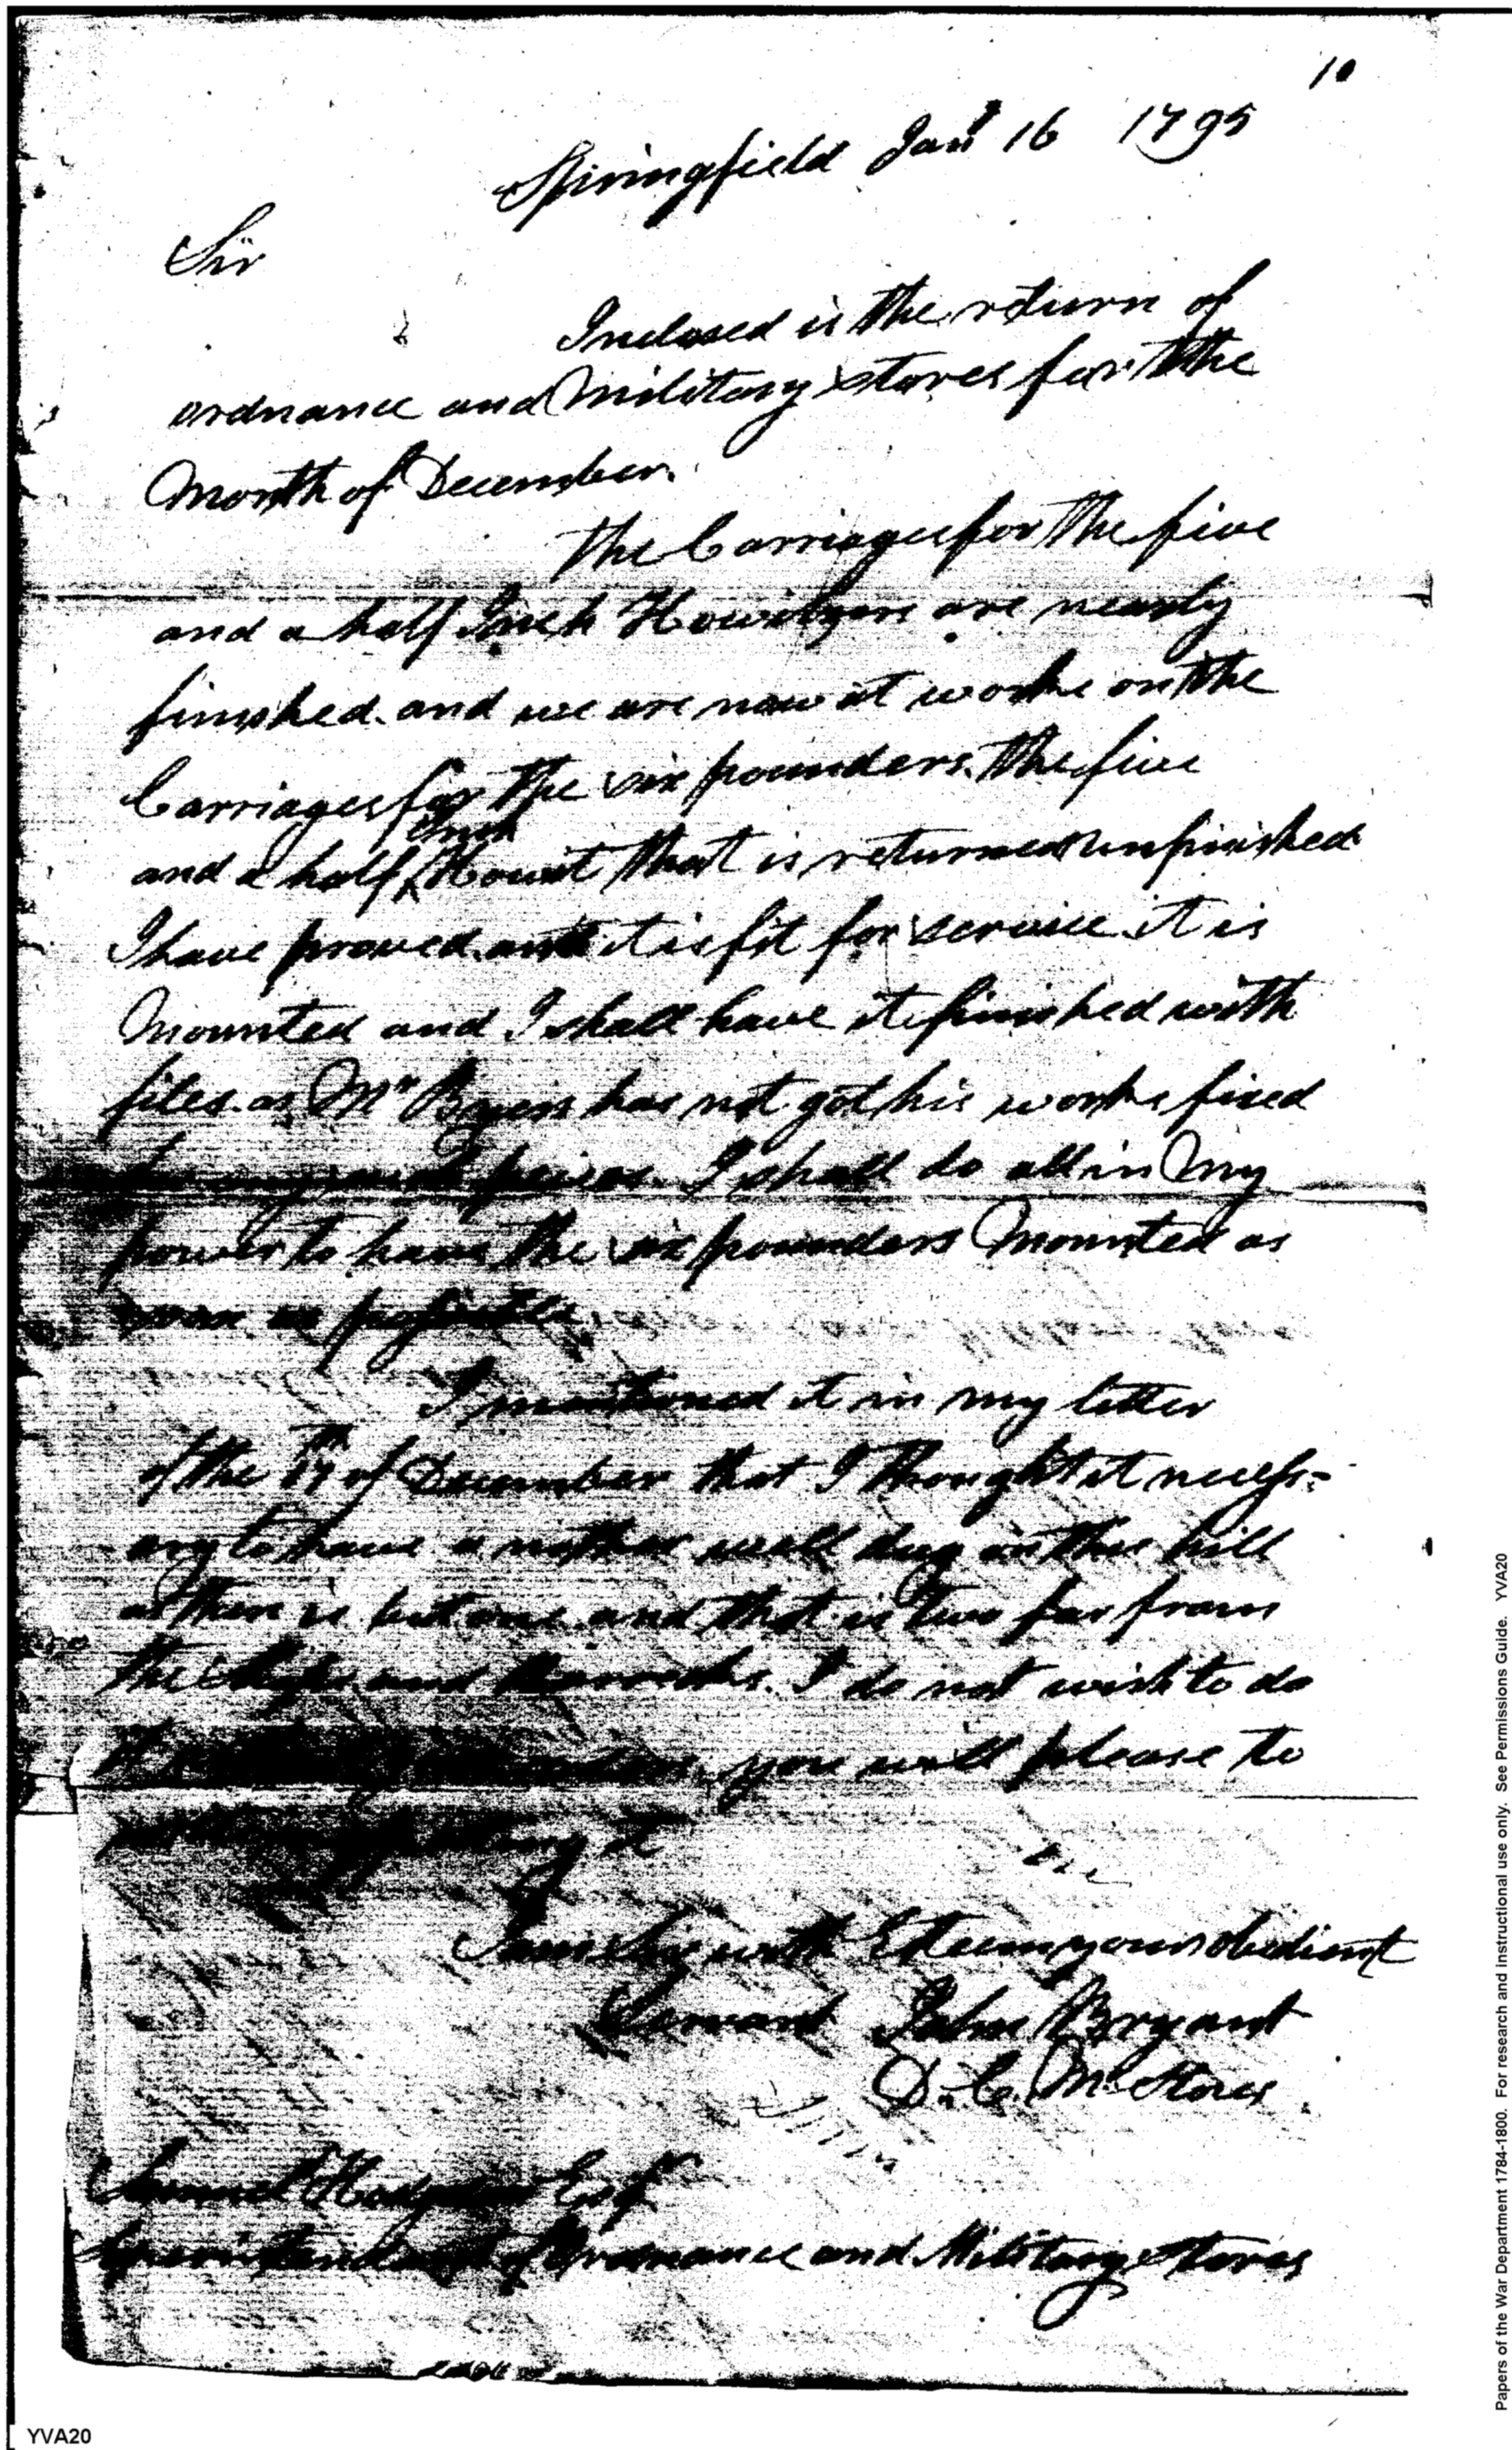 10
Springfield Jany 16 1795
Sir
Inclosed is the return of
ordnance and Military stores for the
Month of December.
The Carriages for the five
and a half Inch Howitzers are nearly
finished. and we are now at worke on the
Carriages for the six pounders. The five
Inch
and a half Howit that is returned unfinished
I have proved. and it is fit for service. it is
Mounted and I shall have it finished with
files. as Mr Byers has not got his works fixed
I shall do all in My
power to have the six pounders Mounted as
soon as possible
I mentioned it in my letter
of the 17th of December that I thought it necess=
ary to have a nother well dug on this hill
as there is but one. and that is two far from
the shops and barracks. I do not wish to do
you will please to
it
I am Sir with Esteem your obedient
Servant John Bryant
D. C. M. Stores
Samuel Hodgdon Esqr
Superintendant of Ordnance and Military stores
YVA20
Papers of the War Department 1784-1800. For research and instructional use only. See Permissions Guide. YVA20